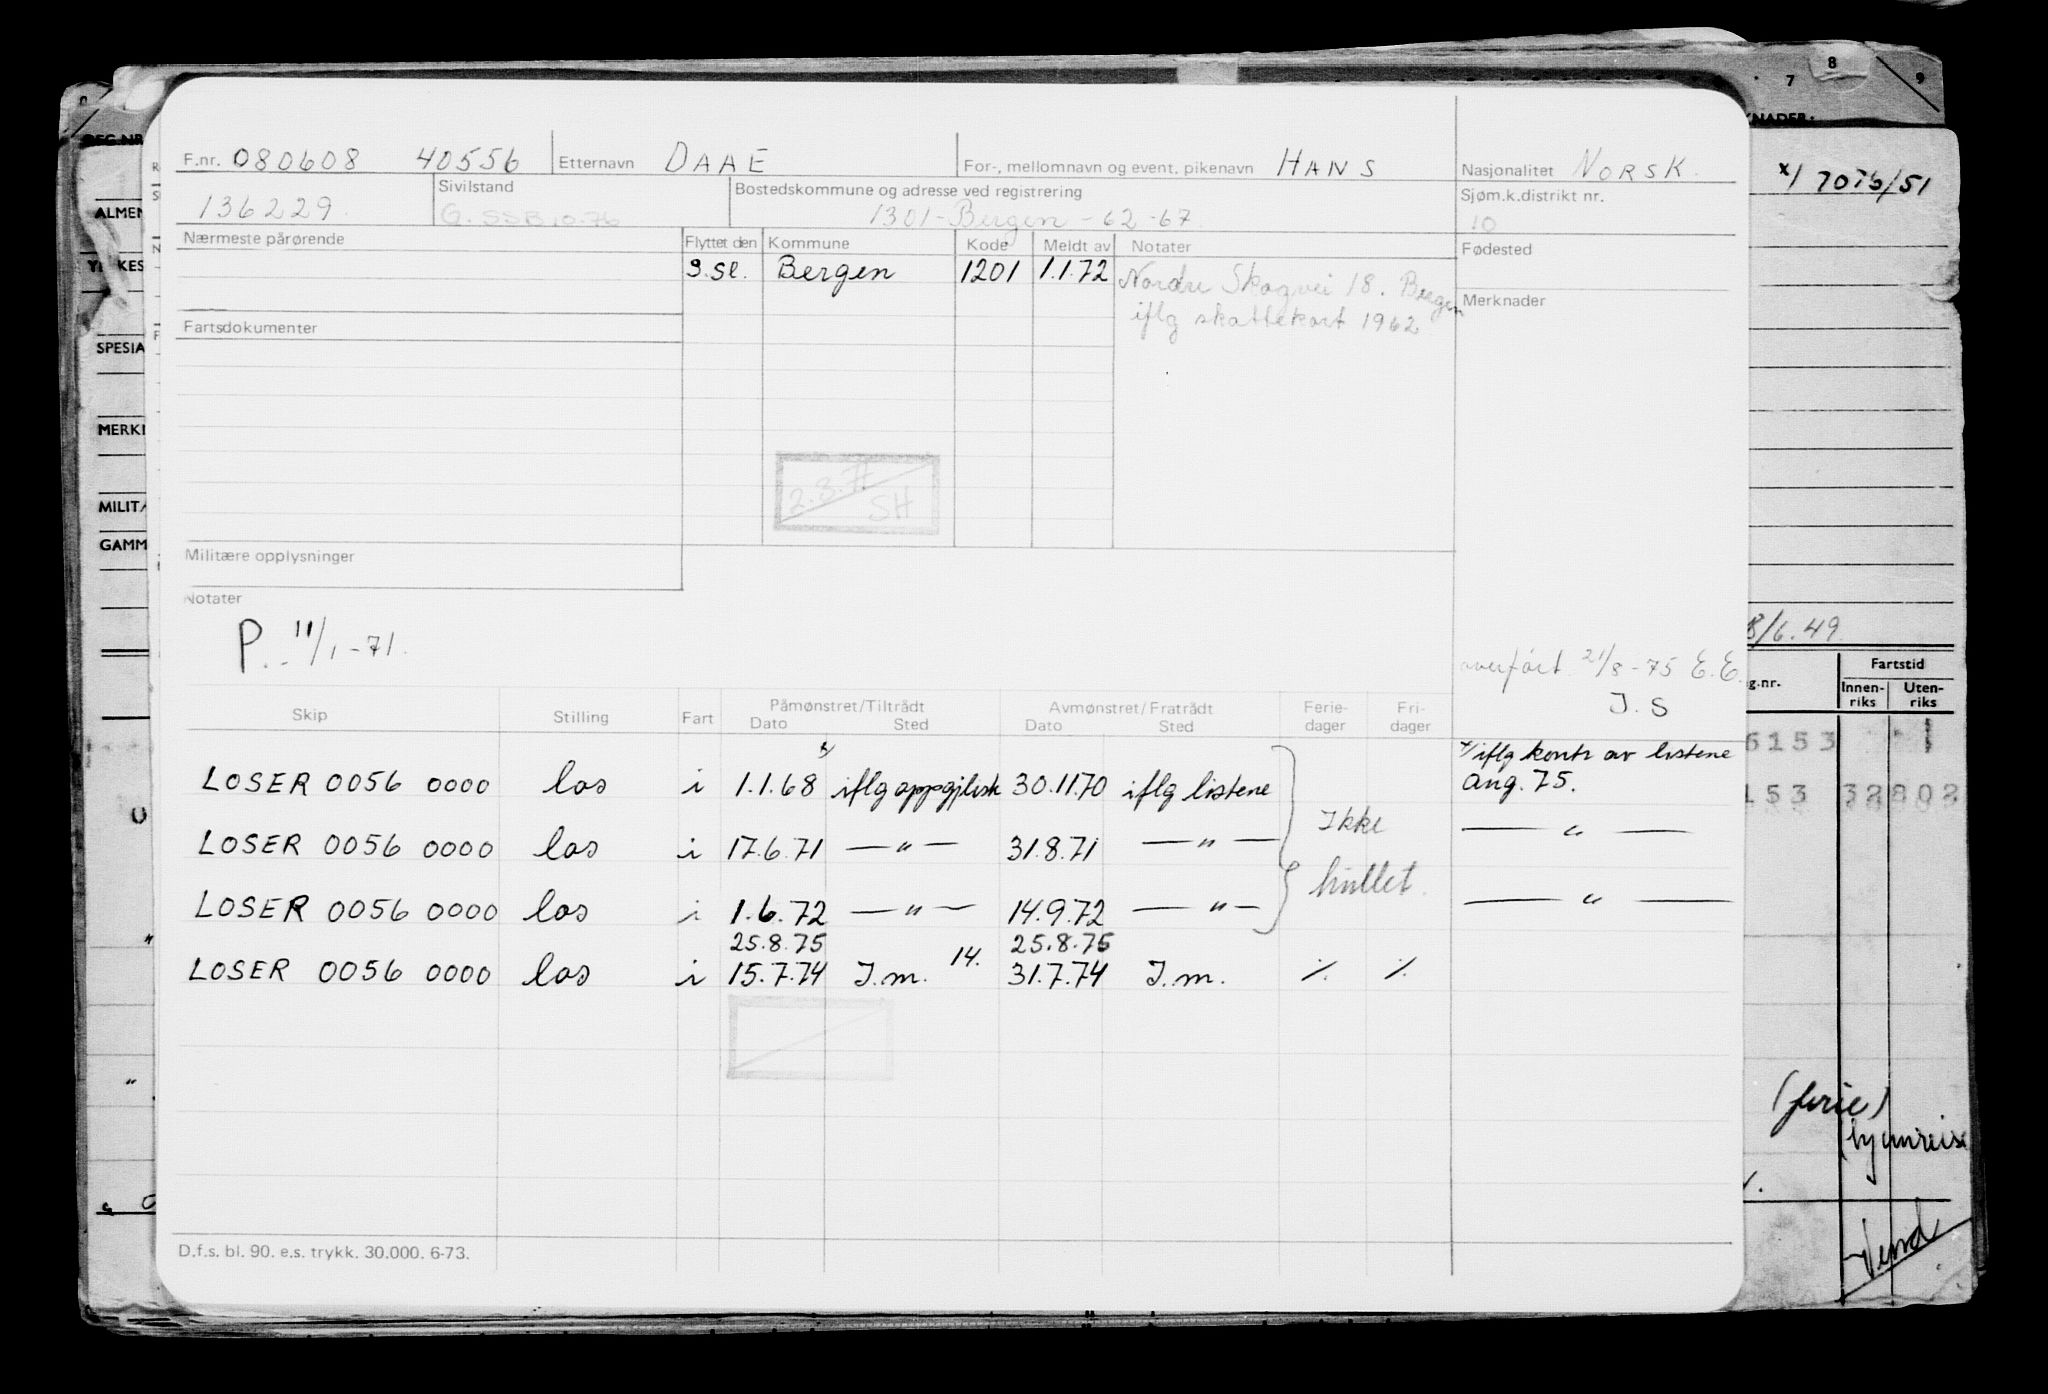 F.nr. 080608 40556 Etternavn DAAE For-, mellomnavn og event, pikenavn HANS Nasjonalitet NORSK.
136229. Sivilstand G. SSB 10-76 Bostedskommune og adresse ved registrering 1301-Bergen-62-67 Sjøm.k.distrikt nr. 10
Nærmeste pårørende Flyttet den Kommune Kode Meldt av Notater Fødested
Bergen 1201 1.1.72 Nordre Skogvei 18. Bergen
iflg skattekort 1962
Merknader
Fartsdokumenter
2.3.77
SH
Militære opplysninger
Notater
P. 11/1-71.
overført 21/8-75 E.E.
J.S
Skip Stilling Fart Påmønstret/Tiltrådt Avmønstret/Fratrådt Ferie- Fri-
Dato Sted Dato Sted dager dager
x/ iflg kontr av listene
LOSER 0056 0000 los i 1.1.68 x/ iflg 30.11.70 iflg listene Aug. 75.
Ikke
LOSER 0056 0000 los i 17.6.71 —"— 31.8.71 —"— —"—
hullet.
LOSER 0056 0000 los i 1.6.72 —"— 14.9.72 —"— —"—
25.8.75 25.8.75
LOSER 0056 0000 los i 15.7.74 J.m. 14. 31.7.74 J.m. ./. ./.
D.f.s. bl. 90. e.s. trykk. 30.000. 6-73.
7 8 9
x/ 7076/51
ALMEN
SPESIA
MERK
MILIT
GAMM
8/6.49
Fartstid
g.nr. Innen- Uten-
riks riks
6153 1
153 32802
(ferie)
Vend